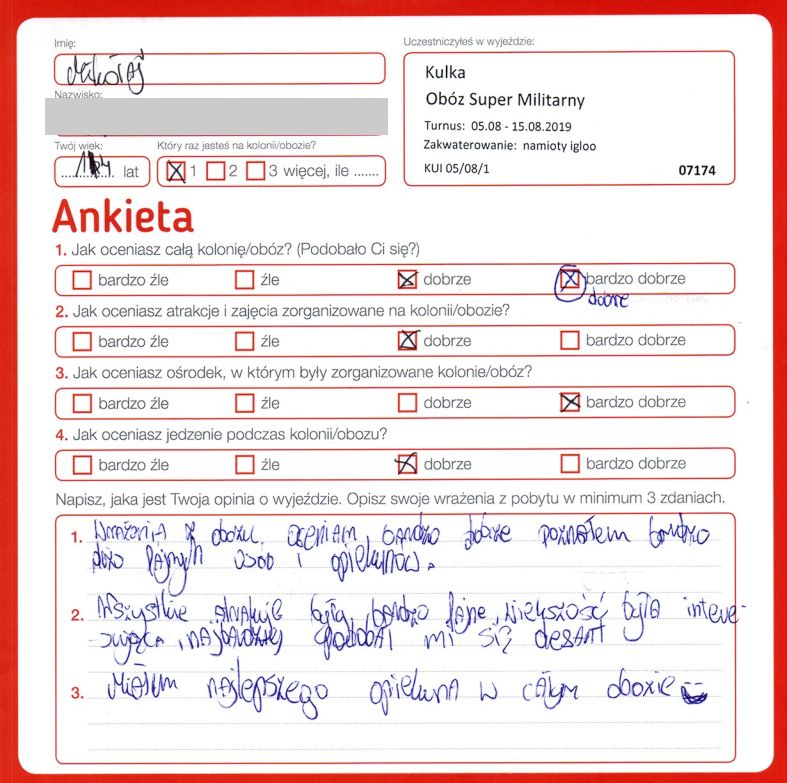 Imię:
Mikołaj
Nazwisko:
Twój wiek:
14 lat
Który raz jesteś na kolonii/obozie?
1 2 3 więcej, ile .......
Uczestniczyłeś w wyjeździe:
Kulka
Obóz Super Militarny
Turnus: 05.08 - 15.08.2019
Zakwaterowanie: namioty igloo
KUI 05/08/1 07174
Ankieta
1. Jak oceniasz całą kolonię/obóz? (Podobało Ci się?)
bardzo źle źle dobrze bardzo dobrze
dobre
2. Jak oceniasz atrakcje i zajęcia zorganizowane na kolonii/obozie?
bardzo źle źle dobrze bardzo dobrze
3. Jak oceniasz ośrodek, w którym były zorganizowane kolonie/obóz?
bardzo źle źle dobrze bardzo dobrze
4. Jak oceniasz jedzenie podczas kolonii/obozu?
bardzo źle źle dobrze bardzo dobrze
Napisz, jaka jest Twoja opinia o wyjeździe. Opisz swoje wrażenia z pobytu w minimum 3 zdaniach.
1. Wrażenia z obozu oceniam, bardzo dobrze poznałem bardzo
dużo fajnych osób i opiekunów.
2. Wszystkie atrakcje były bardzo fajne, większość była intere-
sująca, najbardziej spodobał mi się desant
3. Miałem najlepszego opiekuna w całym obozie